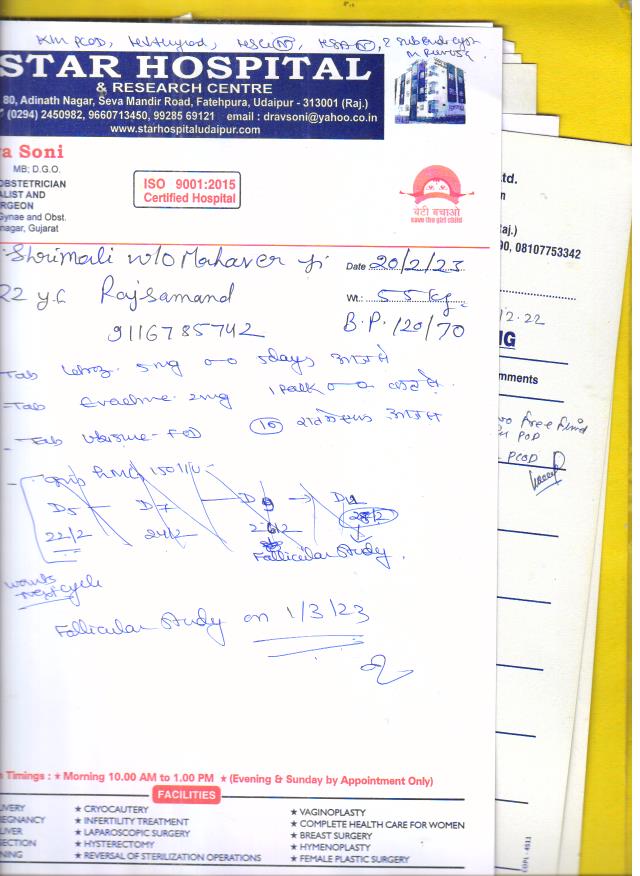 K/M PCOD, HSG (N), HSA (N), 2 subendo cyst
STAR HOSPITAL
& RESEARCH CENTRE
80, Adinath Nagar, Seva Mandir Road, Fatehpura, Udaipur - 313001 (Raj.)
(0294) 2450982, 9660713450, 99285 69121 email : dravsoni@yahoo.co.in
www.starhospitaludaipur.com
a Soni
MB; D.G.O.
OBSTETRICIAN
ALIST AND
RGEON
Gynae and Obst.
nagar, Gujarat
ISO 9001:2015
Certified Hospital
बेटी बचाओ
save the girl child
Shrimali w/o Mahaver ji
Date 20/2/23
22 y.
Rajsamand
Wt.: 55 kg
9116785742
B.P. 120/70
Tab 5mg 0-0 5days आज से
Tab 2mg
- Tab (10) आज से
- 150 IU
D5 D7 D9 → D11
22/2 24/2 26/2 28/2
Follicular Study
wants
next cycle
Follicular Study on 1/3/23
Timings : ★ Morning 10.00 AM to 1.00 PM ★ (Evening & Sunday by Appointment Only)
FACILITIES
IVERY
EGNANCY
LIVER
SECTION
NING
★ CRYOCAUTERY
★ INFERTILITY TREATMENT
★ LAPAROSCOPIC SURGERY
★ HYSTERECTOMY
★ REVERSAL OF STERILIZATION OPERATIONS
★ VAGINOPLASTY
★ COMPLETE HEALTH CARE FOR WOMEN
★ BREAST SURGERY
★ HYMENOPLASTY
★ FEMALE PLASTIC SURGERY
td.
n
aj.)
90, 08107753342
/2.22
IG
mments
no free fluid
in POD
- PCOD
COPL - 4511